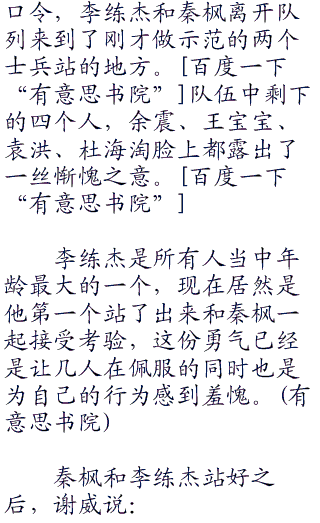 口令，李练杰和秦枫离开队
列来到了刚才做示范的两个
士兵站的地方。[百度一下
“有意思书院”]队伍中剩下
的四个人，余震、王宝宝、
袁洪、杜海淘脸上都露出了
一丝惭愧之意。[百度一下
“有意思书院”]
李练杰是所有人当中年
龄最大的一个，现在居然是
他第一个站了出来和秦枫一
起接受考验，这份勇气已经
是让几人在佩服的同时也是
为自己的行为感到羞愧。(有
意思书院)
秦枫和李练杰站好之
后，谢威说：